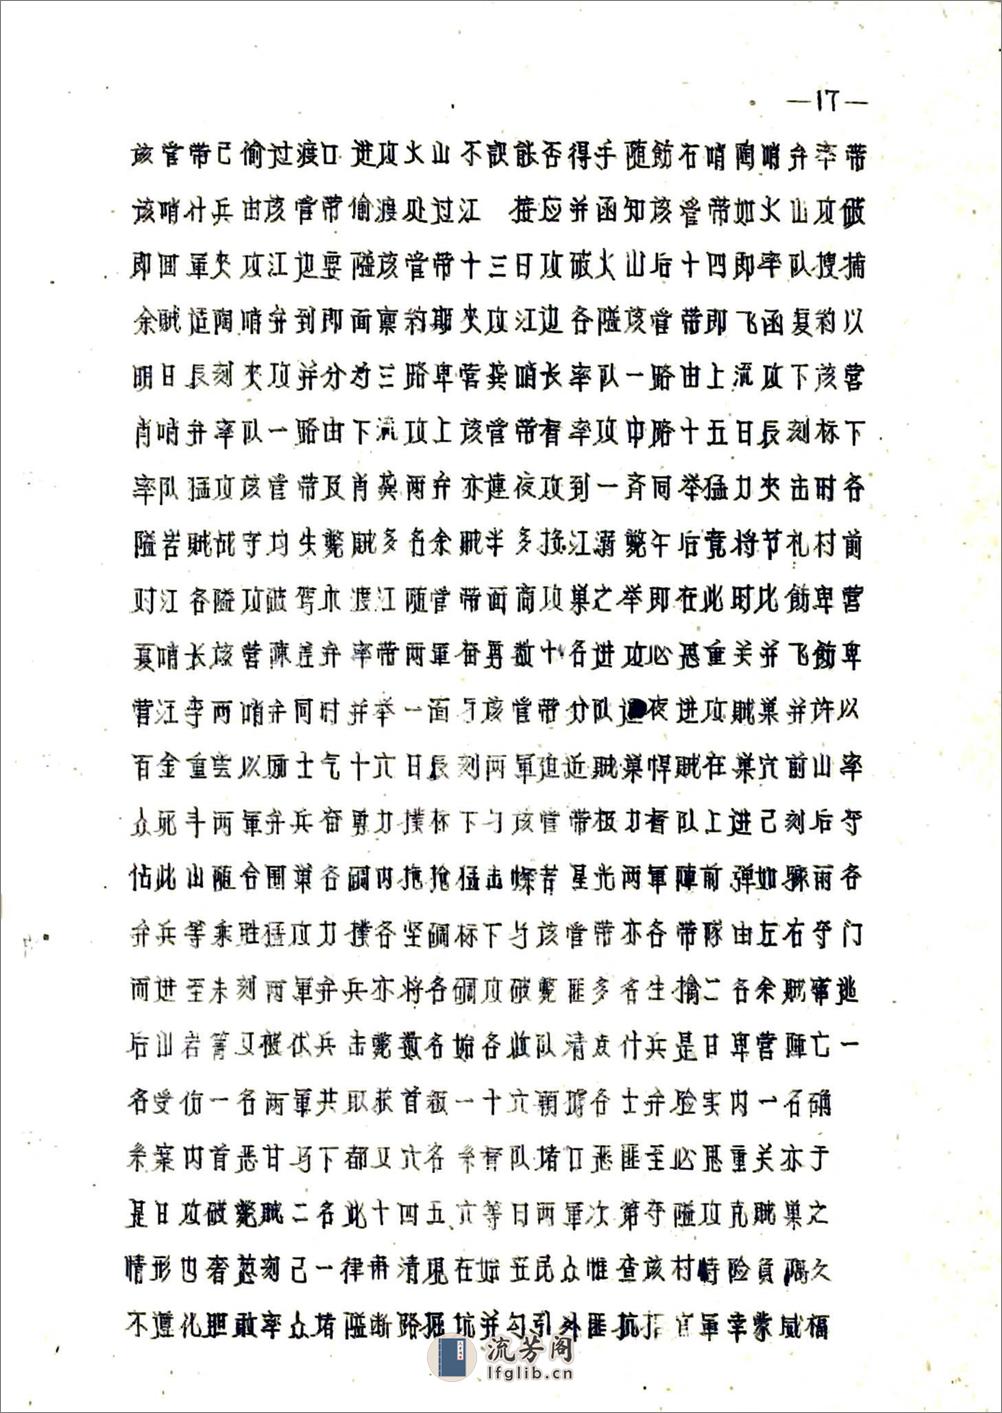 —17—
该管带已偷过渡口进攻火山不识能否得手随饬石哨陶哨弁率带
该哨什兵由该管带偷渡处过江 接应并函知该管带如火山攻破
即回軍夹攻江边要隘该管带十三日攻破火山后十四即率队搜捕
余贼适陶哨弁到即面禀约期夹攻江边各隘该管带即飞函复约以
明日辰刻夹攻并分为三路卑营龚哨长率队一路由上流攻下该营
肖哨弁率队一路由下流攻上该管带督率攻中路十五日辰刻标下
率队猛攻该管带及肖龚两弁亦連夜攻到一斉同举猛力夹击时各
隘岩贼战守均失毙贼多名余贼半多挽江溺毙午后竟将节礼村前
对江各隘攻破驾木渡江随管带面商攻巢之举即在此时比饬卑营
夏哨长该营陳差弁率带两軍奋勇数十名进攻必恶重关并飞饬卑
营江李两哨弁同时并举一面与该管带分队夜进攻贼巢并许以
百金重赏以励士气十六日辰刻两軍迫近贼巢悍贼在巢穴前山率
众死斗两軍弁兵奋勇力撲标下与该管带极力督队上进已刻后夺
佔此山随合围巢各碉内拖抢猛击燦若星光两軍陣前弹如骤雨各
弁兵等乘胜猛攻力撲各坚碉标下与该管带亦各带隊由左右夺门
而进至未刻两軍弁兵亦将各碉攻破毙匪多名生擒二名余贼窜逃
后山岩箐又被伏兵击毙数名始各收队清点什兵是日卑营陣亡一
名受伤一名两軍共取获首级一十六颗據各士弁验实内一名确
系案内首恶甘马下都又六名系督队堵口恶匪至必恶重关亦于
是日攻破毙贼二名此十四五六等日两軍次第夺隘攻克贼巢之
情形也奢惹刻己一律肃清現在始至民众惟查该村特险負隅久
不遵礼胆敢率众堵隘断路掘坑并勾引外匪抗拒官軍幸蒙威福
流芳阁
lfglib.cn